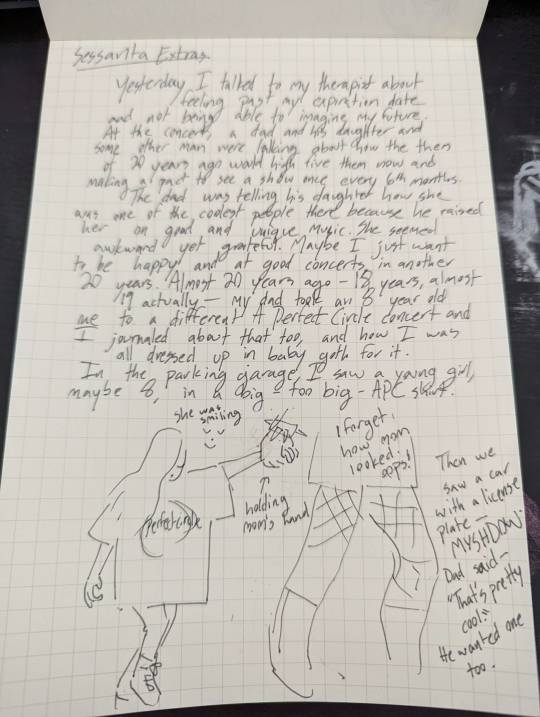 Sessanta Extras
Yesterday I talked to my therapist about
feeling past my expiration date
and not being able to imagine my future.
At the concert, a dad and his daughter and
some other man were talking about how the them
of 20 years ago would high five them now and
making a pact to see a show once every 6th months.
The dad was telling his daughter how she
was one of the coolest people there because he raised
her on good and unique music. She seemed
awkward yet grateful. Maybe I just want
to be happy and at good concerts in another
20 years. Almost 20 years ago - 18 years, almost
19 actually - my dad took an 8 year old
me to a different A Perfect Circle concert and
I journaled about that too, and how I was
all dressed up in baby goth for it.
In the parking garage I saw a young girl,
maybe 8, in a big - too big - APC shirt.
she was
smiling
Perfect Circle
↑
holding
mom's hand
I forget
how mom
looked
oops!
Then we
saw a car
with a license
plate -
MYSHDOW
Dad said -
"That's pretty
cool."
He wanted one
too.